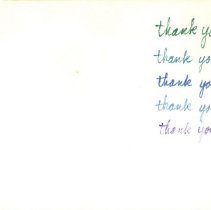 thank yo
thank yo
thank yo
thank yo
thank you